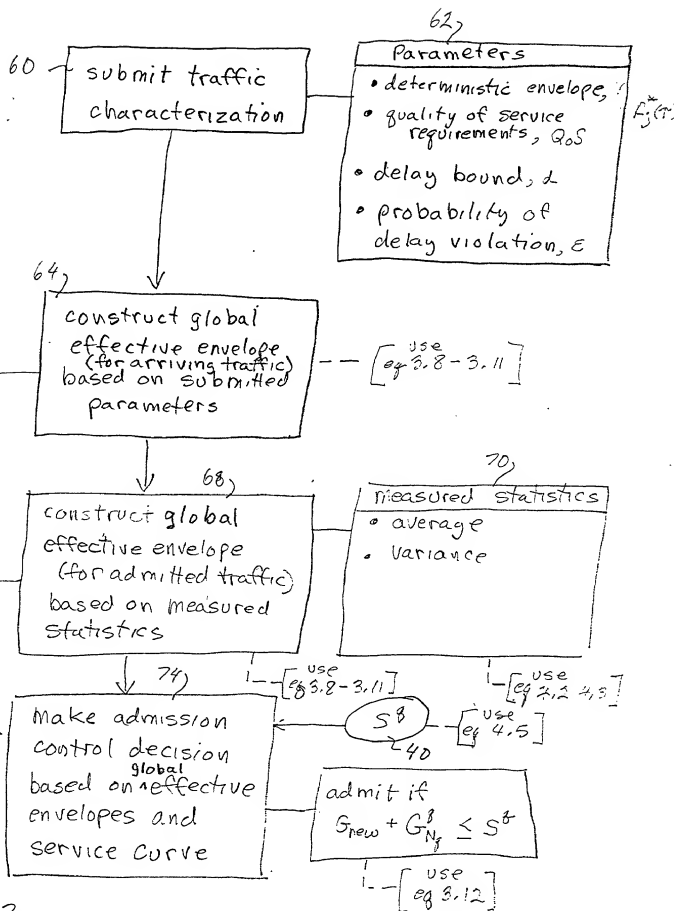 60
submit traffic
characterization
62
Parameters
• deterministic envelope,
• quality of service
requirements, QoS
• delay bound, d
• probability of
delay violation, ε
64
construct global
effective envelope
(for arriving traffic)
based on submitted
parameters
[use
eq 3.8 - 3.11]
68
construct global
effective envelope
(for admitted traffic)
based on measured
statistics
70
measured statistics
• average
• variance
[use
eq 3.8 - 3.11]
[use
eq
74
make admission
control decision
global
based on ^ effective
envelopes and
service curve
40
[use
eq 4.5]
admit if
[use
eq 3.12]